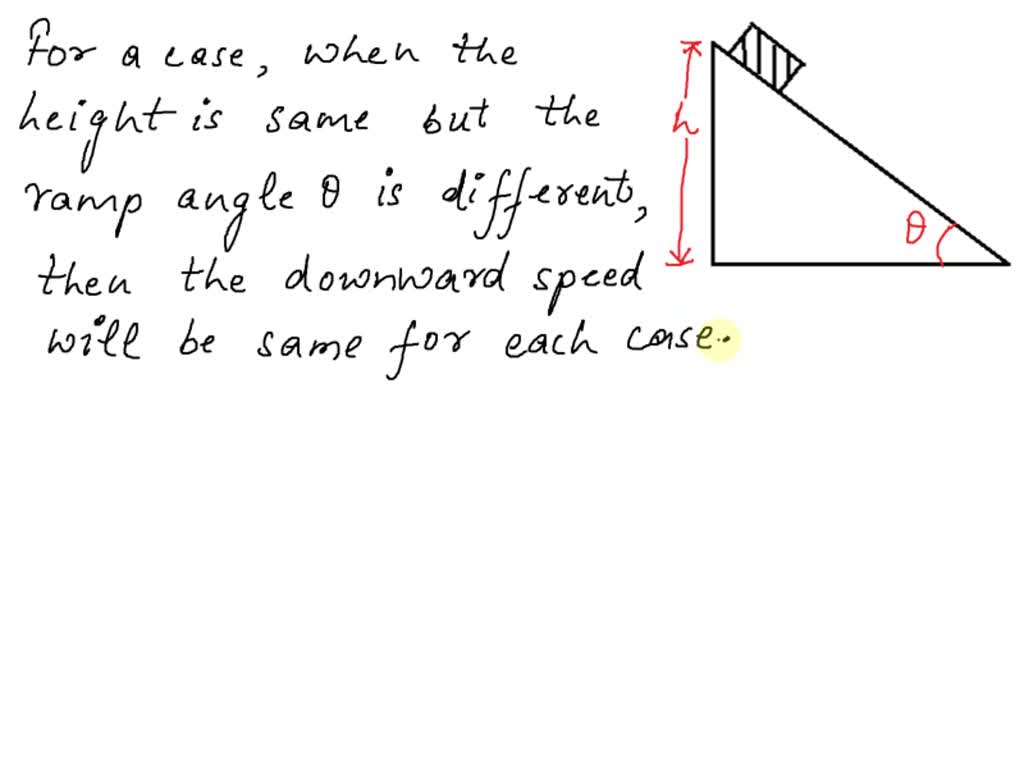 For a case, when the
height is same but the
ramp angle θ is different,
then the downward speed
will be same for each case.
h
θ